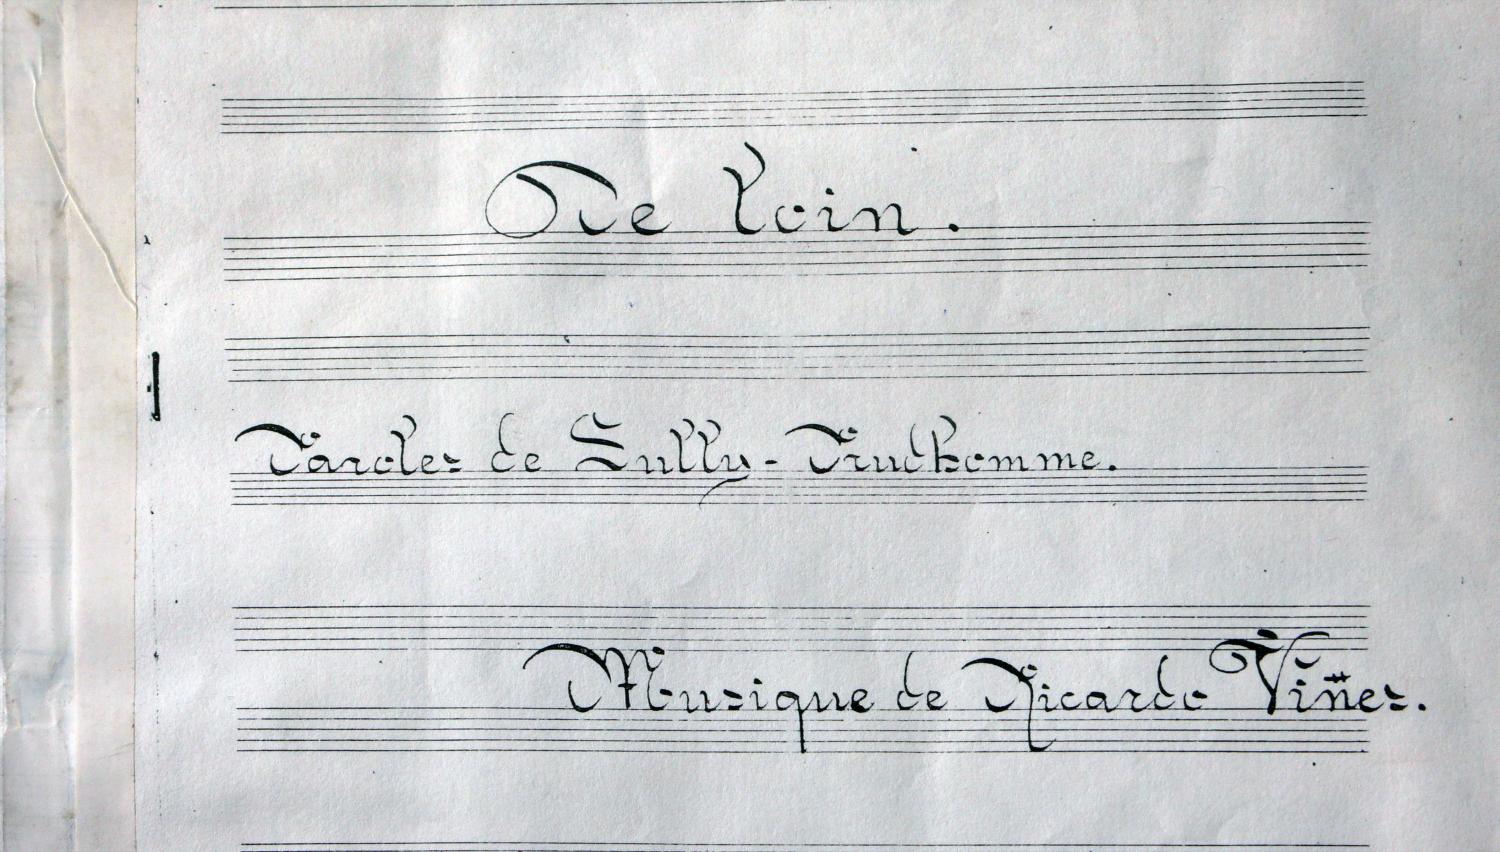 De loin.
Paroles de Sully-Prudhomme.
Musique de Ricardo Viñes.